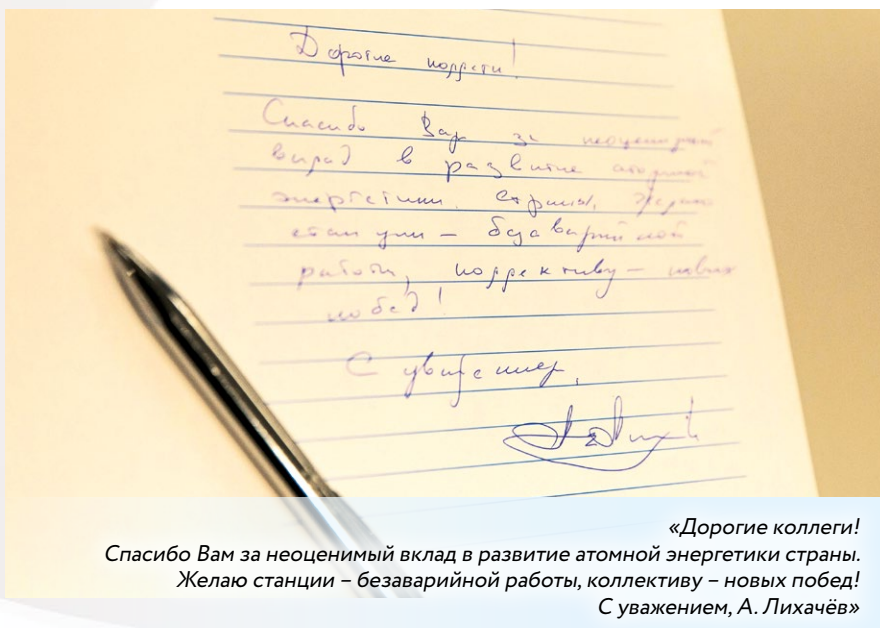 Дорогие коллеги!
Спасибо Вам за неоценимый
вклад в развитие атомной
энергетики страны. Желаю
станции – безаварийной
работы, коллективу – новых
побед!
С уважением,
А. Лихачёв
«Дорогие коллеги!
Спасибо Вам за неоценимый вклад в развитие атомной энергетики страны.
Желаю станции – безаварийной работы, коллективу – новых побед!
С уважением, А. Лихачёв»